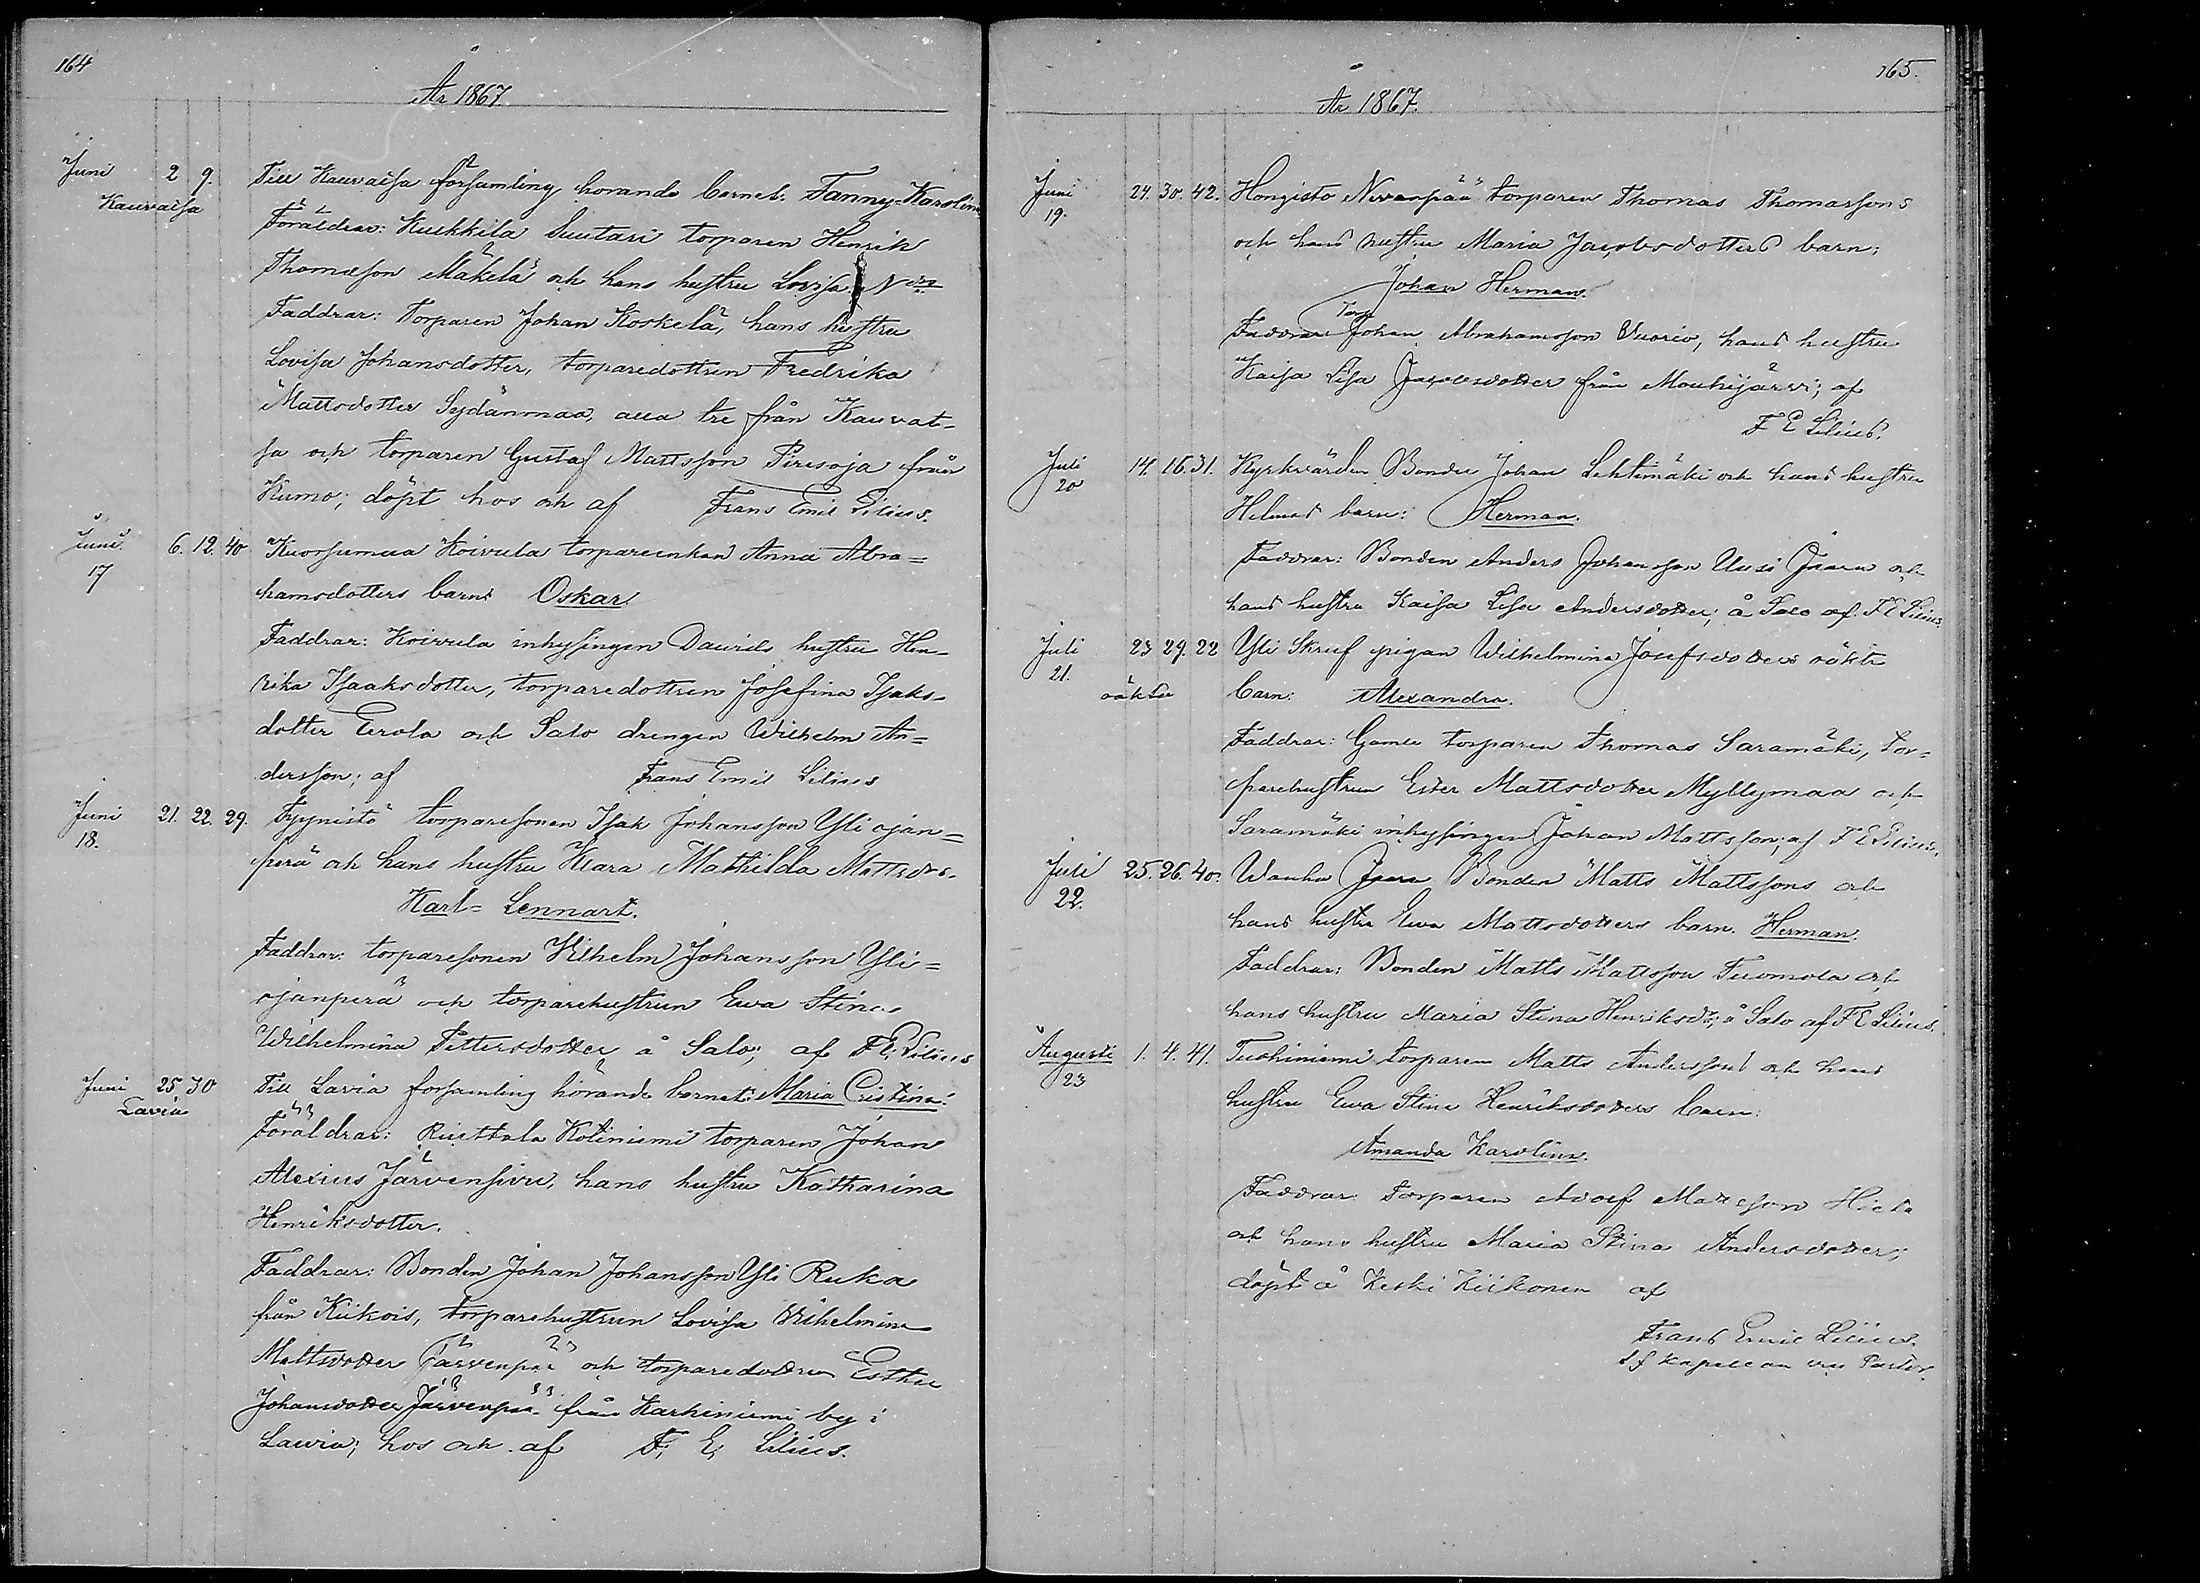 164
År 1867.
Juni 2 9. Till Kauvatsa församling hörande barnet: Fanny Karolina
Kauvatsa
Föräldrar: Kuckkila Suutari torparen Henrik
Thomasson Mäkelä och hans hustru Lovisa
Faddrar: Torparen Johan Koskela, hans hustru
Lovisa Johansdotter, torparedottren Fredrika
Mattsdotter Sydänmaa, alla tre från Kauvat-
sa och torparen Gustaf Mattsson Piresoja från
Kumo; döpt hos och af Frans Emil Lilius.
Juni 6. 12. 40 Kuorsumaa Koivula torpareenkan Anna Abra=
17 hamsdotters barn: Oskar.
Faddrar: Koivula inhysingen Davids hustru Hen-
rika Isaaksdotter, torparedottren Josefina Isaks-
dotter Erola och Salo drengen Wilhelm An=
dersson; af Frans Emil Lilius
Juni 21. 22. 29. Fyynistö torparesonen Isak Johansson Yli ojan=
18. perä och hans hustru Klara Mathilda Mattsdrs.
Karl-Lennart.
Faddrar: torparesonen Vilhelm Johansson Yli=
ojanperä och torparehustrun Ewa Stina
Wilhelmina Pettersdotter å Salo; af F. E. Lilius
Juni 25 30 Till Lavia församling hörande barnet: Maria Cristina.
Lavia
Föräldrar: Riuttala Kotiniemi torparen Johan
Alexius Järvensivu hans hustru Katharina
Henriksdotter.
Faddrar: Bonden Johan Johansson Yli Ruka
från Kiikois, torparehustrun Lovisa Wilhelmina
Mattsdotter Järvenpää och torparedottren Esther
Johansdotter Järvenpää från Karhiniemi by i
Lavia; hos och af F. E. Lilius.
165.
År 1867.
Juni 24. 30. 42. Hongisto Nevanpää torparen Thomas Thomassons
19. och hans hustru Maria Jacobsdotters barn:
Johan Herman.
Torp
Faddrar: Johan Abrahamsson Vuorio, hans hustru
Kaisa Lisa Jacobsdotter från Mouhijärvi; af
F E Lilius.
Juli 14. 16. 31. Kyrkvärden Bonden Johan Lehtimäki och hans hustru
20 Helmas barn: Herman.
Faddrar: Bonden Anders Johansson Uusi Jaara och
hans hustru Kaisa Lisa Andersdotter; å Salo af F E Lilius.
Juli 23 29. 22 Yli Skruf pigan Wilhelmina Josefsdotters oäkta
21. oäkta barn: Alexandra.
Faddrar: Gamle torparen Thomas Saramäki, tor-
parehustrun Ester Mattsdotter Myllymaa och
Saramäki inhysingen Johan Mattsson; af F E Lilius.
Juli 25. 26. 40. Wanha Jaara Bonden Matts Mattssons och
22. hans hustru Ewa Mattsdotters barn. Herman.
Faddrar: Bonden Matts Mattsson Tuomola och
hans hustru Maria Stina Henriksdr; å Salo af F E Lilius.
Augusti 1. 4. 41. Tuohiniemi torparen Matts Anderssons och hans
23 hustru Ewa Stina Henriksdotters barn:
Amanda Karolina.
Faddrar: Torparen Adolf Mattsson Hieta
och hans hustru Maria Stina Andersdotter;
döpt å Keski Kiikonen af
Frans Emil Lilius.
kapellan